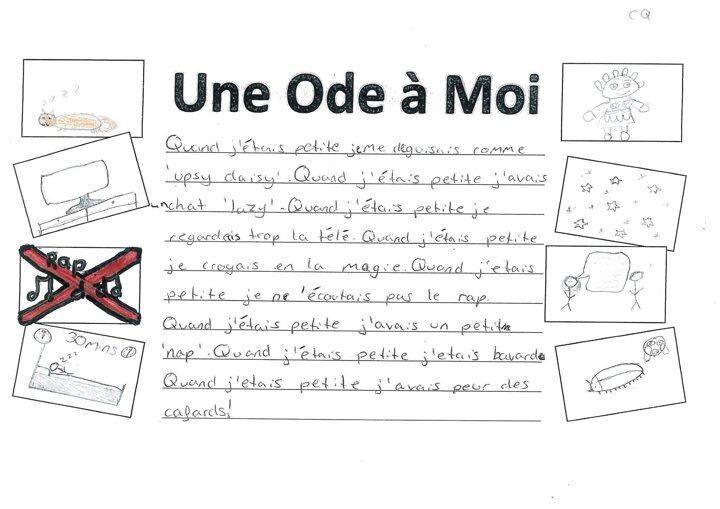 CQ
Une Ode à Moi
Quand j'étais petite je me déguisais comme
'upsy daisy'. Quand j'étais petite j'avais
un chat 'lazy'. Quand j'étais petite je
regardais trop la télé. Quand j'étais petite
je croyais en la magie. Quand j'etais
petite je ne 'écoutais pas le rap.
Quand j'étais petite j'avais un petit
'nap'. Quand j'étais petite j'etais bavarde
Quand j'etais petite j'avais peur des
cafards!
zzz
Rap
30mins
zzz